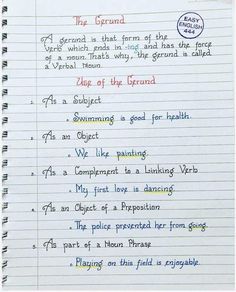 The Gerund
EASY
ENGLISH
444
A gerund is that form of the
verb which ends in -ing and has the force
of a noun. That's why, the gerund is called
a Verbal Noun.
Use of the Gerund
1. As a Subject
• Swimming is good for health.
2. As an Object
• We like painting.
3. As a Complement to a Linking Verb
• My first love is dancing.
4. As an Object of a Preposition
• The police prevented her from going.
5. As part of a Noun Phrase
• Playing on this field is enjoyable.